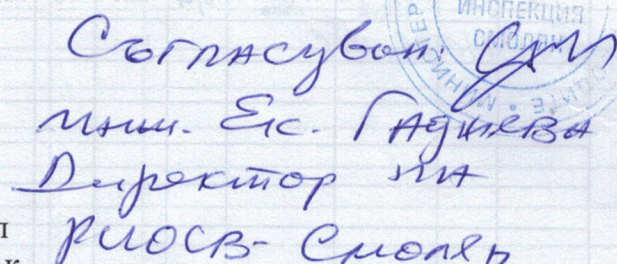 ИНСПЕКЦИЯ
СМОЛЯН
Съгласувал:
инж. Ек. Гаджева
Директор на
РИОСВ - Смолян